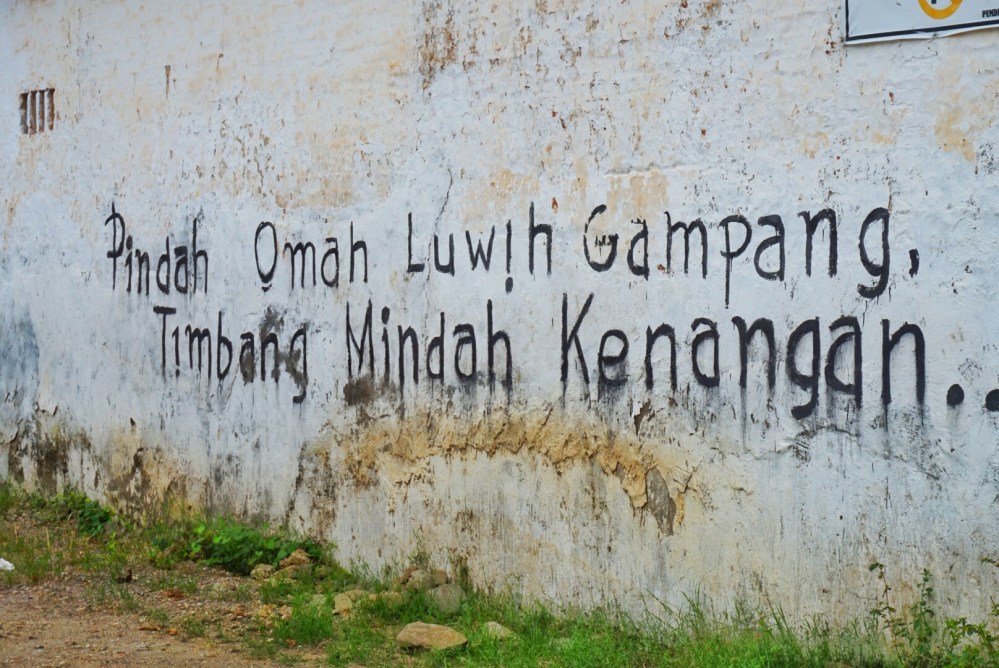 Pindah Omah Luwih Gampang,
Timbang Mindah Kenangan..